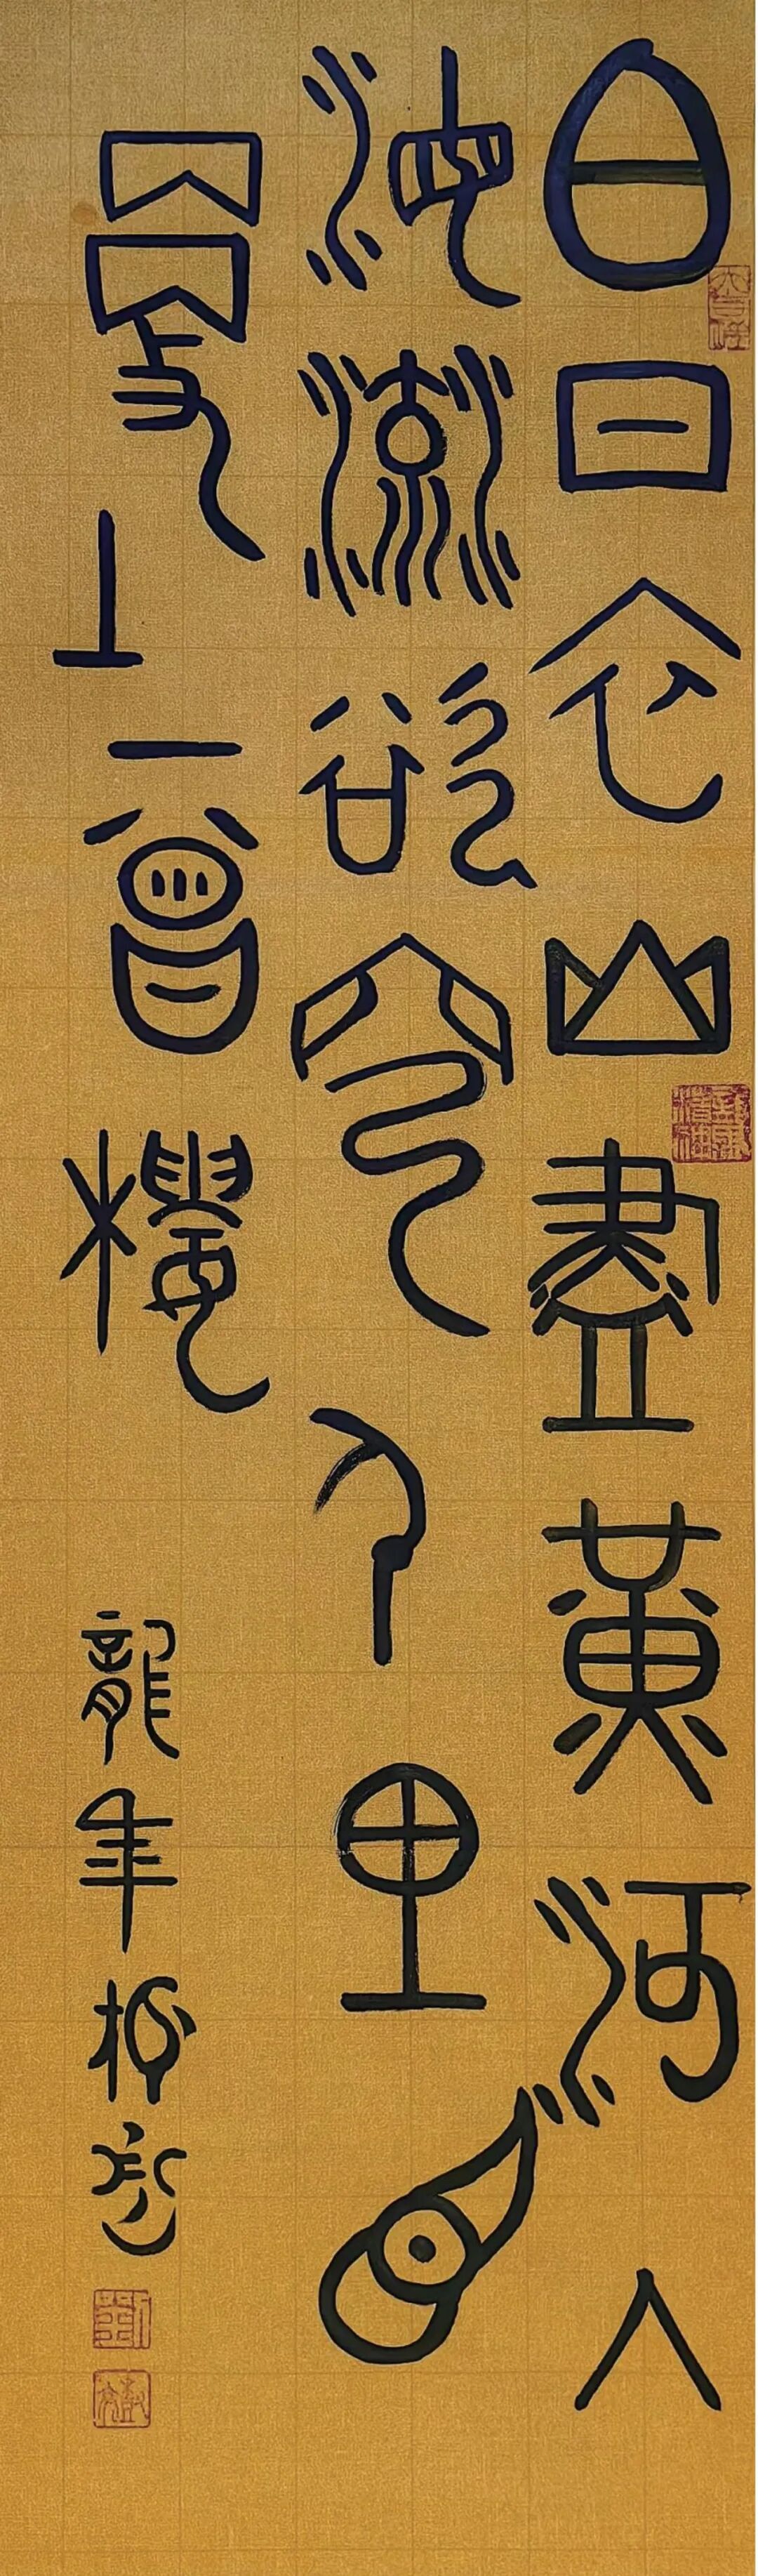 白日依山盡黃河入
海流欲窮千里目
更上一層樓
龍年
劉